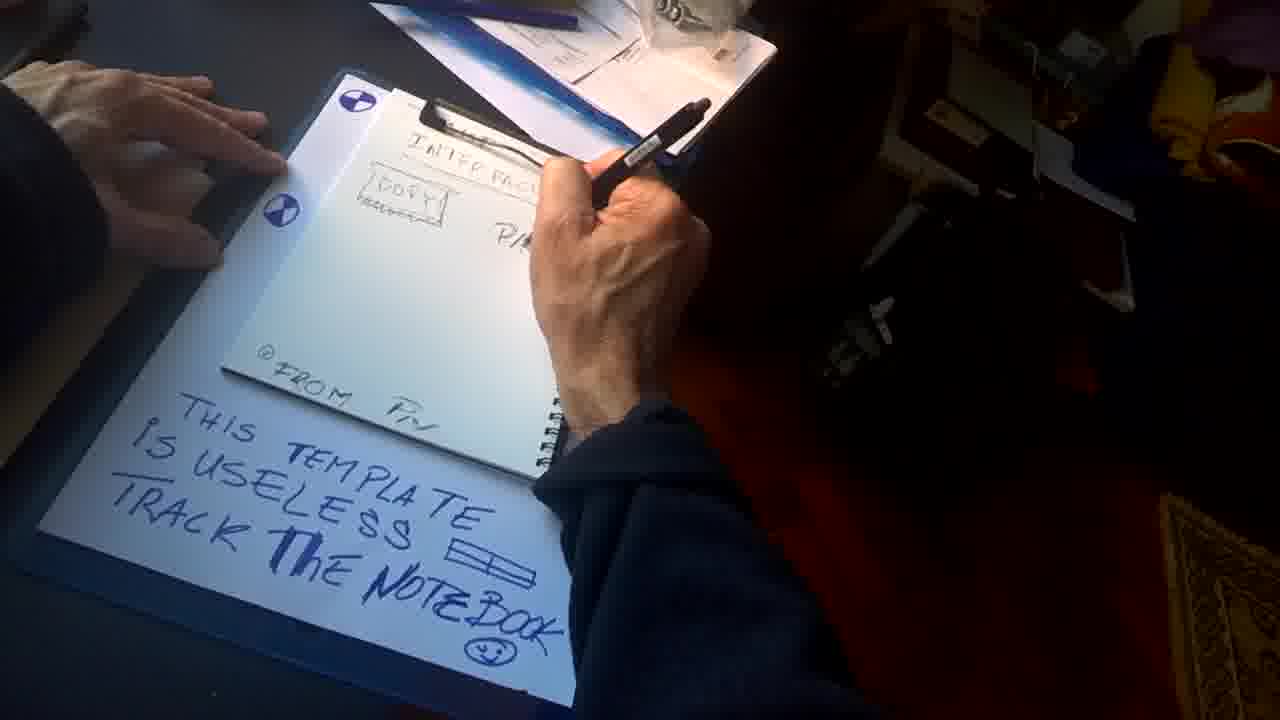 INTERFAC
COPY
PA
FROM
THIS TEMPLATE
iS USELESS
TRACK ThE NOTEBOOK